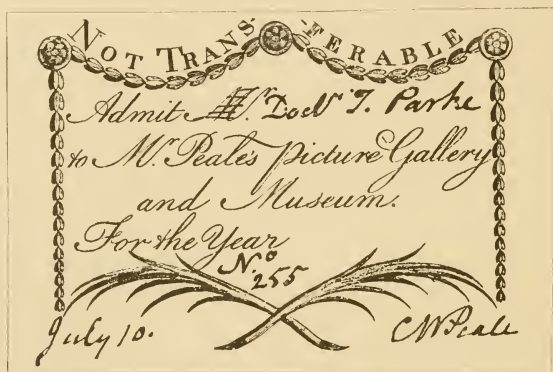 NOT TRANS-FERABLE
Admit Docr. T. Parke
to Mr. Peale's Picture Gallery
and Museum.
For the Year
No. 255
July 10. CWPeale